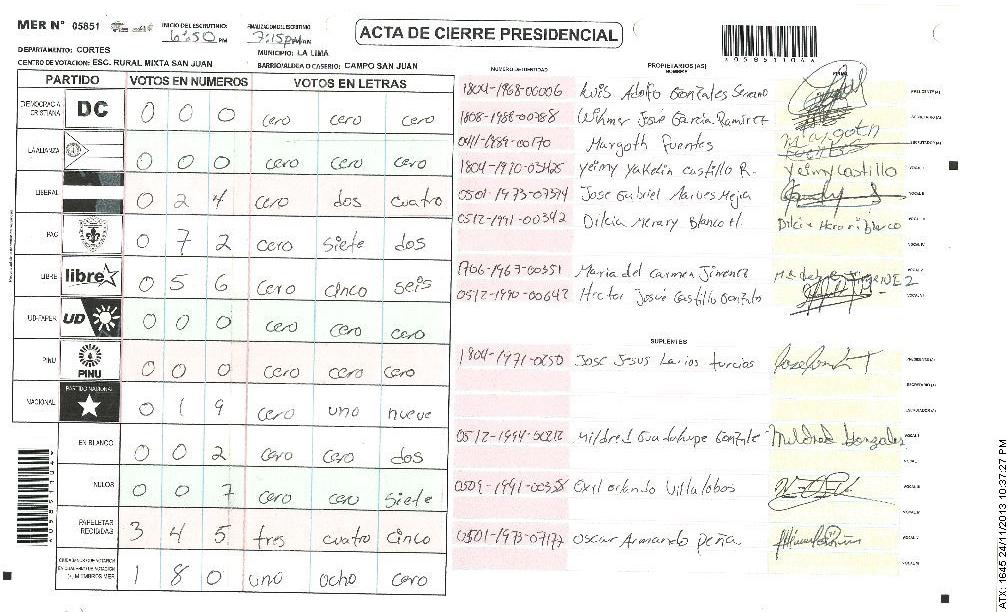 MER N° 05851
INICIO DEL ESCRUTINIO: 6:50 PM
FINALIZACION DEL ESCRUTINIO 7:15 PM
ACTA DE CIERRE PRESIDENCIAL
A05851104A
DEPARTAMENTO: CORTES
MUNICIPIO: LA LIMA
CENTRO DE VOTACION: ESC. RURAL MIXTA SAN JUAN
BARRIO/ALDEA O CASERIO: CAMPO SAN JUAN
PARTIDO VOTOS EN NUMEROS VOTOS EN LETRAS
DEMOCRACIA CRISTIANA DC 0 0 0 cero cero cero
LA ALIANZA 0 0 0 cero cero cero
LIBERAL 0 2 4 cero dos cuatro
PAC 0 7 2 cero siete dos
LIBRE libre 0 5 6 cero cinco seis
UD-FAPER UD 0 0 0 cero cero cero
PINU PINU 0 0 0 cero cero cero
NACIONAL PARTIDO NACIONAL 0 1 9 cero uno nueve
EN BLANCO 0 0 2 cero cero dos
NULOS 0 0 7 cero cero siete
PAPELETAS RECIBIDAS 3 4 5 tres cuatro cinco
1 8 0 uno ocho cero
NUMERO DE IDENTIDAD PROPIETARIOS (AS) NOMBRE FIRMA
1804-1968-00006 Luis Adolfo Gonzales Serrano PRESIDENTE(A)
1808-1988-00788 Wilmer José Garcia Ramirez SECRETARIO(A)
0411-1989-00170 Margoth Puentes Margoth Puentes ESCRUTADOR(A)
1804-1970-03425 Yeimy Yakelin Castillo R. Yeimy Castillo VOCAL I
0501-1973-07374 Jose Gabriel Mejia VOCAL II
0512-1991-00342 Dilcia Merary Blanco H. Dilcia Blanco VOCAL III
VOCAL IV
1706-1967-00351 Maria del Carmen Jimenez VOCAL V
0512-1990-00642 Hector Josué Castillo Gonzalo VOCAL VI
SUPLENTES
Jose Jesus Larios Turcios PRESIDENTE(A)
SECRETARIO(A)
ESCRUTADOR(A)
Mildred Guadalupe Mildred Gonzales VOCAL I
VOCAL II
0509-1991-00358 Oxil Orlando Villalobos VOCAL III
VOCAL IV
0501-1973-07177 Oscar Armando Peña VOCAL V
VOCAL VI
ATX: 1645 24/11/2013 10:37:27 PM